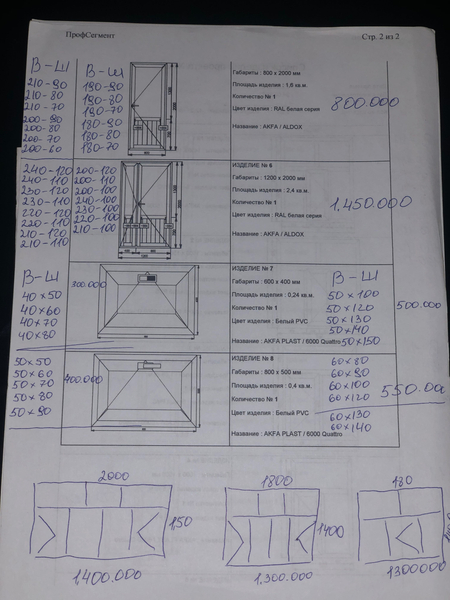 ПрофСегмент
Стр. 2 из 2
В-Ш
210-90
210-80
210-70
200-90
200-80
200-70
200-60
В-Ш
190-90
190-80
190-70
180-90
180-80
180-70
Габариты : 800 x 2000 мм
Площадь изделия : 1,6 кв.м.
Количество № 1
Цвет изделия : RAL белая серия
Название : AKFA / ALDOX
800.000
240-120
240-110
230-120
230-110
220-120
220-110
210-120
210-110
200-120
200-110
200-100
240-100
230-100
220-100
210-100
ИЗДЕЛИЕ № 6
Габариты : 1200 x 2000 мм
Площадь изделия : 2,4 кв.м.
Количество № 1
Цвет изделия : RAL белая серия
Название : AKFA / ALDOX
1.450.000
В-Ш
40x50
40x60
40x70
40x80
300.000
ИЗДЕЛИЕ № 7
Габариты : 600 x 400 мм
Площадь изделия : 0,24 кв.м.
Количество № 1
Цвет изделия : Белый PVC
Название : AKFA PLAST / 6000 Quattro
В-Ш
50x100
50x120
50x130
50x140
50x150
500.000
50x50
50x60
50x70
50x80
50x90
400.000
ИЗДЕЛИЕ № 8
Габариты : 800 x 500 мм
Площадь изделия : 0,4 кв.м.
Количество № 1
Цвет изделия : Белый PVC
Название : AKFA PLAST / 6000 Quattro
60x80
60x90
60x100
60x120
60x130
60x140
550.00
2000
150
1.400.000
1800
1400
1.300.000
180
1300000